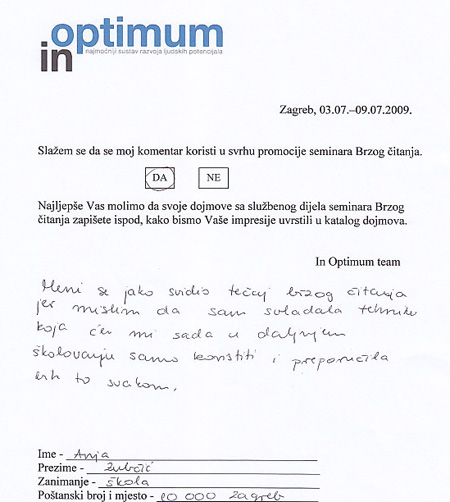 optimum
in
najmoćniji sustav razvoja ljudskih potencijala
Zagreb, 03.07.–09.07.2009.
Slažem se da se moj komentar koristi u svrhu promocije seminara Brzog čitanja.
DA NE
Najljepše Vas molimo da svoje dojmove sa službenog dijela seminara Brzog
čitanja zapišete ispod, kako bismo Vaše impresije uvrstili u katalog dojmova.
In Optimum team
Meni se jako svidio tečaj brzog čitanja
jer mislim da sam svladala tehnike
koja će mi sada u daljnjem
školovanju samo koristiti i preporučila
bih to svakom.
Ime - Anja
Prezime - Zubčić
Zanimanje - škola
Poštanski broj i mjesto - 10 000 Zagreb